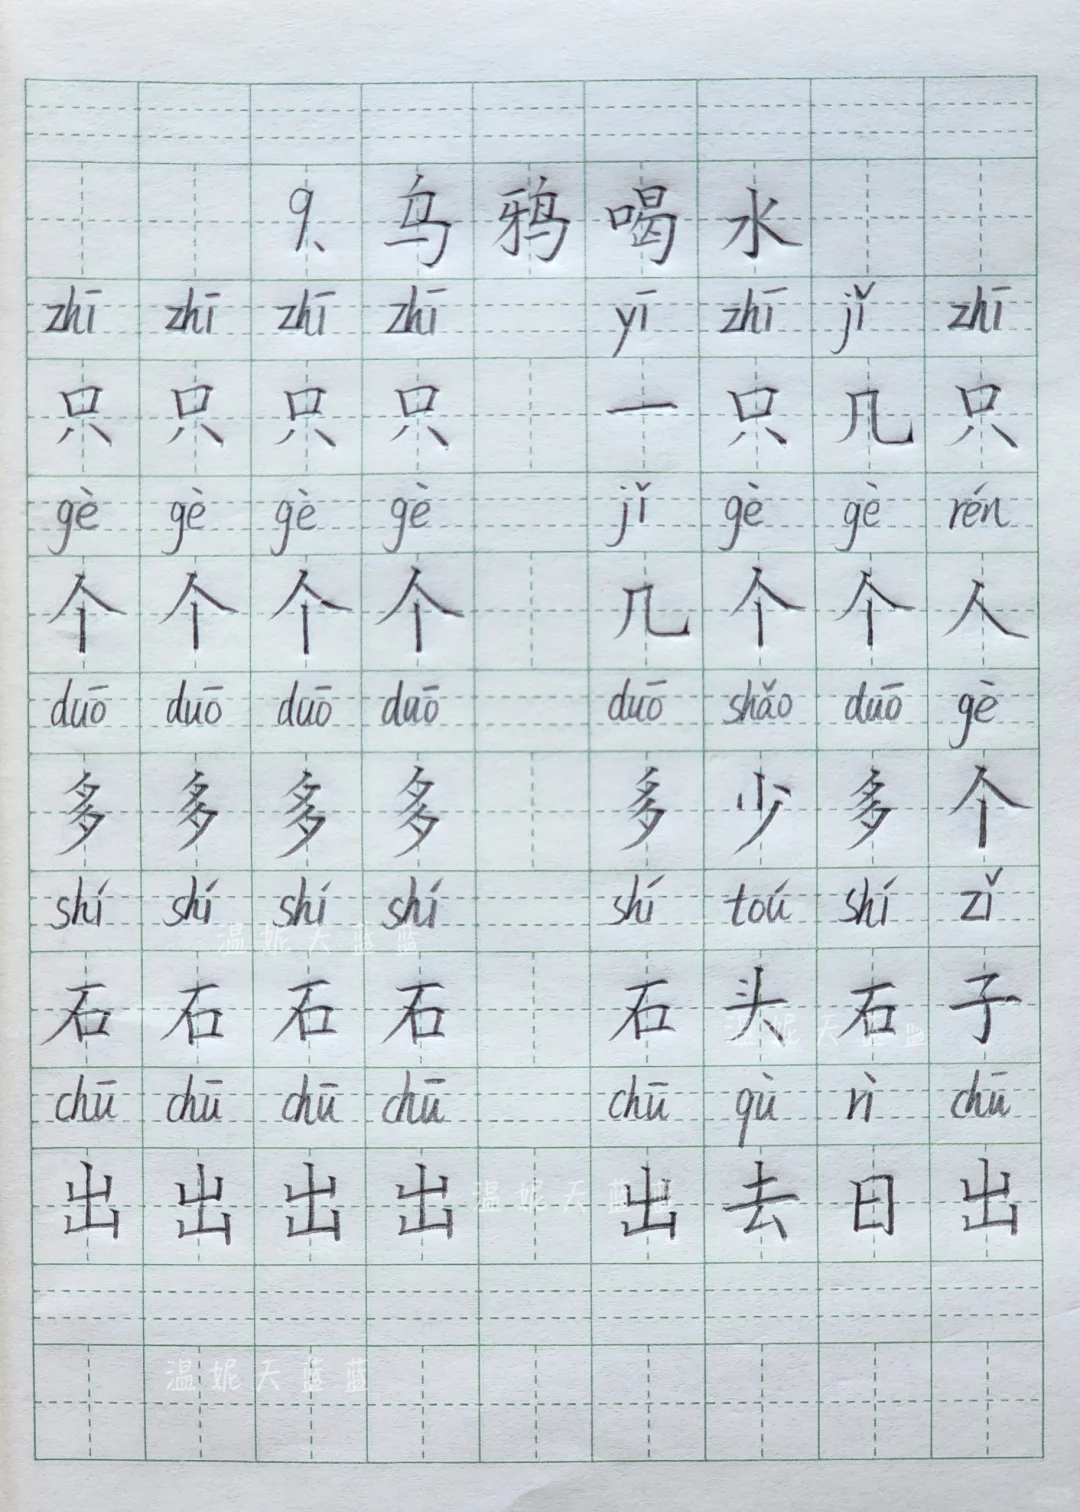 9、乌鸦喝水
zhī zhī zhī zhī yī zhī jǐ zhī
只 只 只 只 一 只 几 只
gè gè gè gè jǐ gè gè rén
个 个 个 个 几 个 个 人
duō duō duō duō duō shǎo duō gè
多 多 多 多 多 少 多 个
shí shí shí shí shí toú shí zǐ
石 石 石 石 石 头 石 子
温妮天蓝蓝
温妮天蓝蓝
chū chū chū chū chū qù rì chū
出 出 出 出 出 去 日 出
温妮天蓝蓝
温妮天蓝蓝